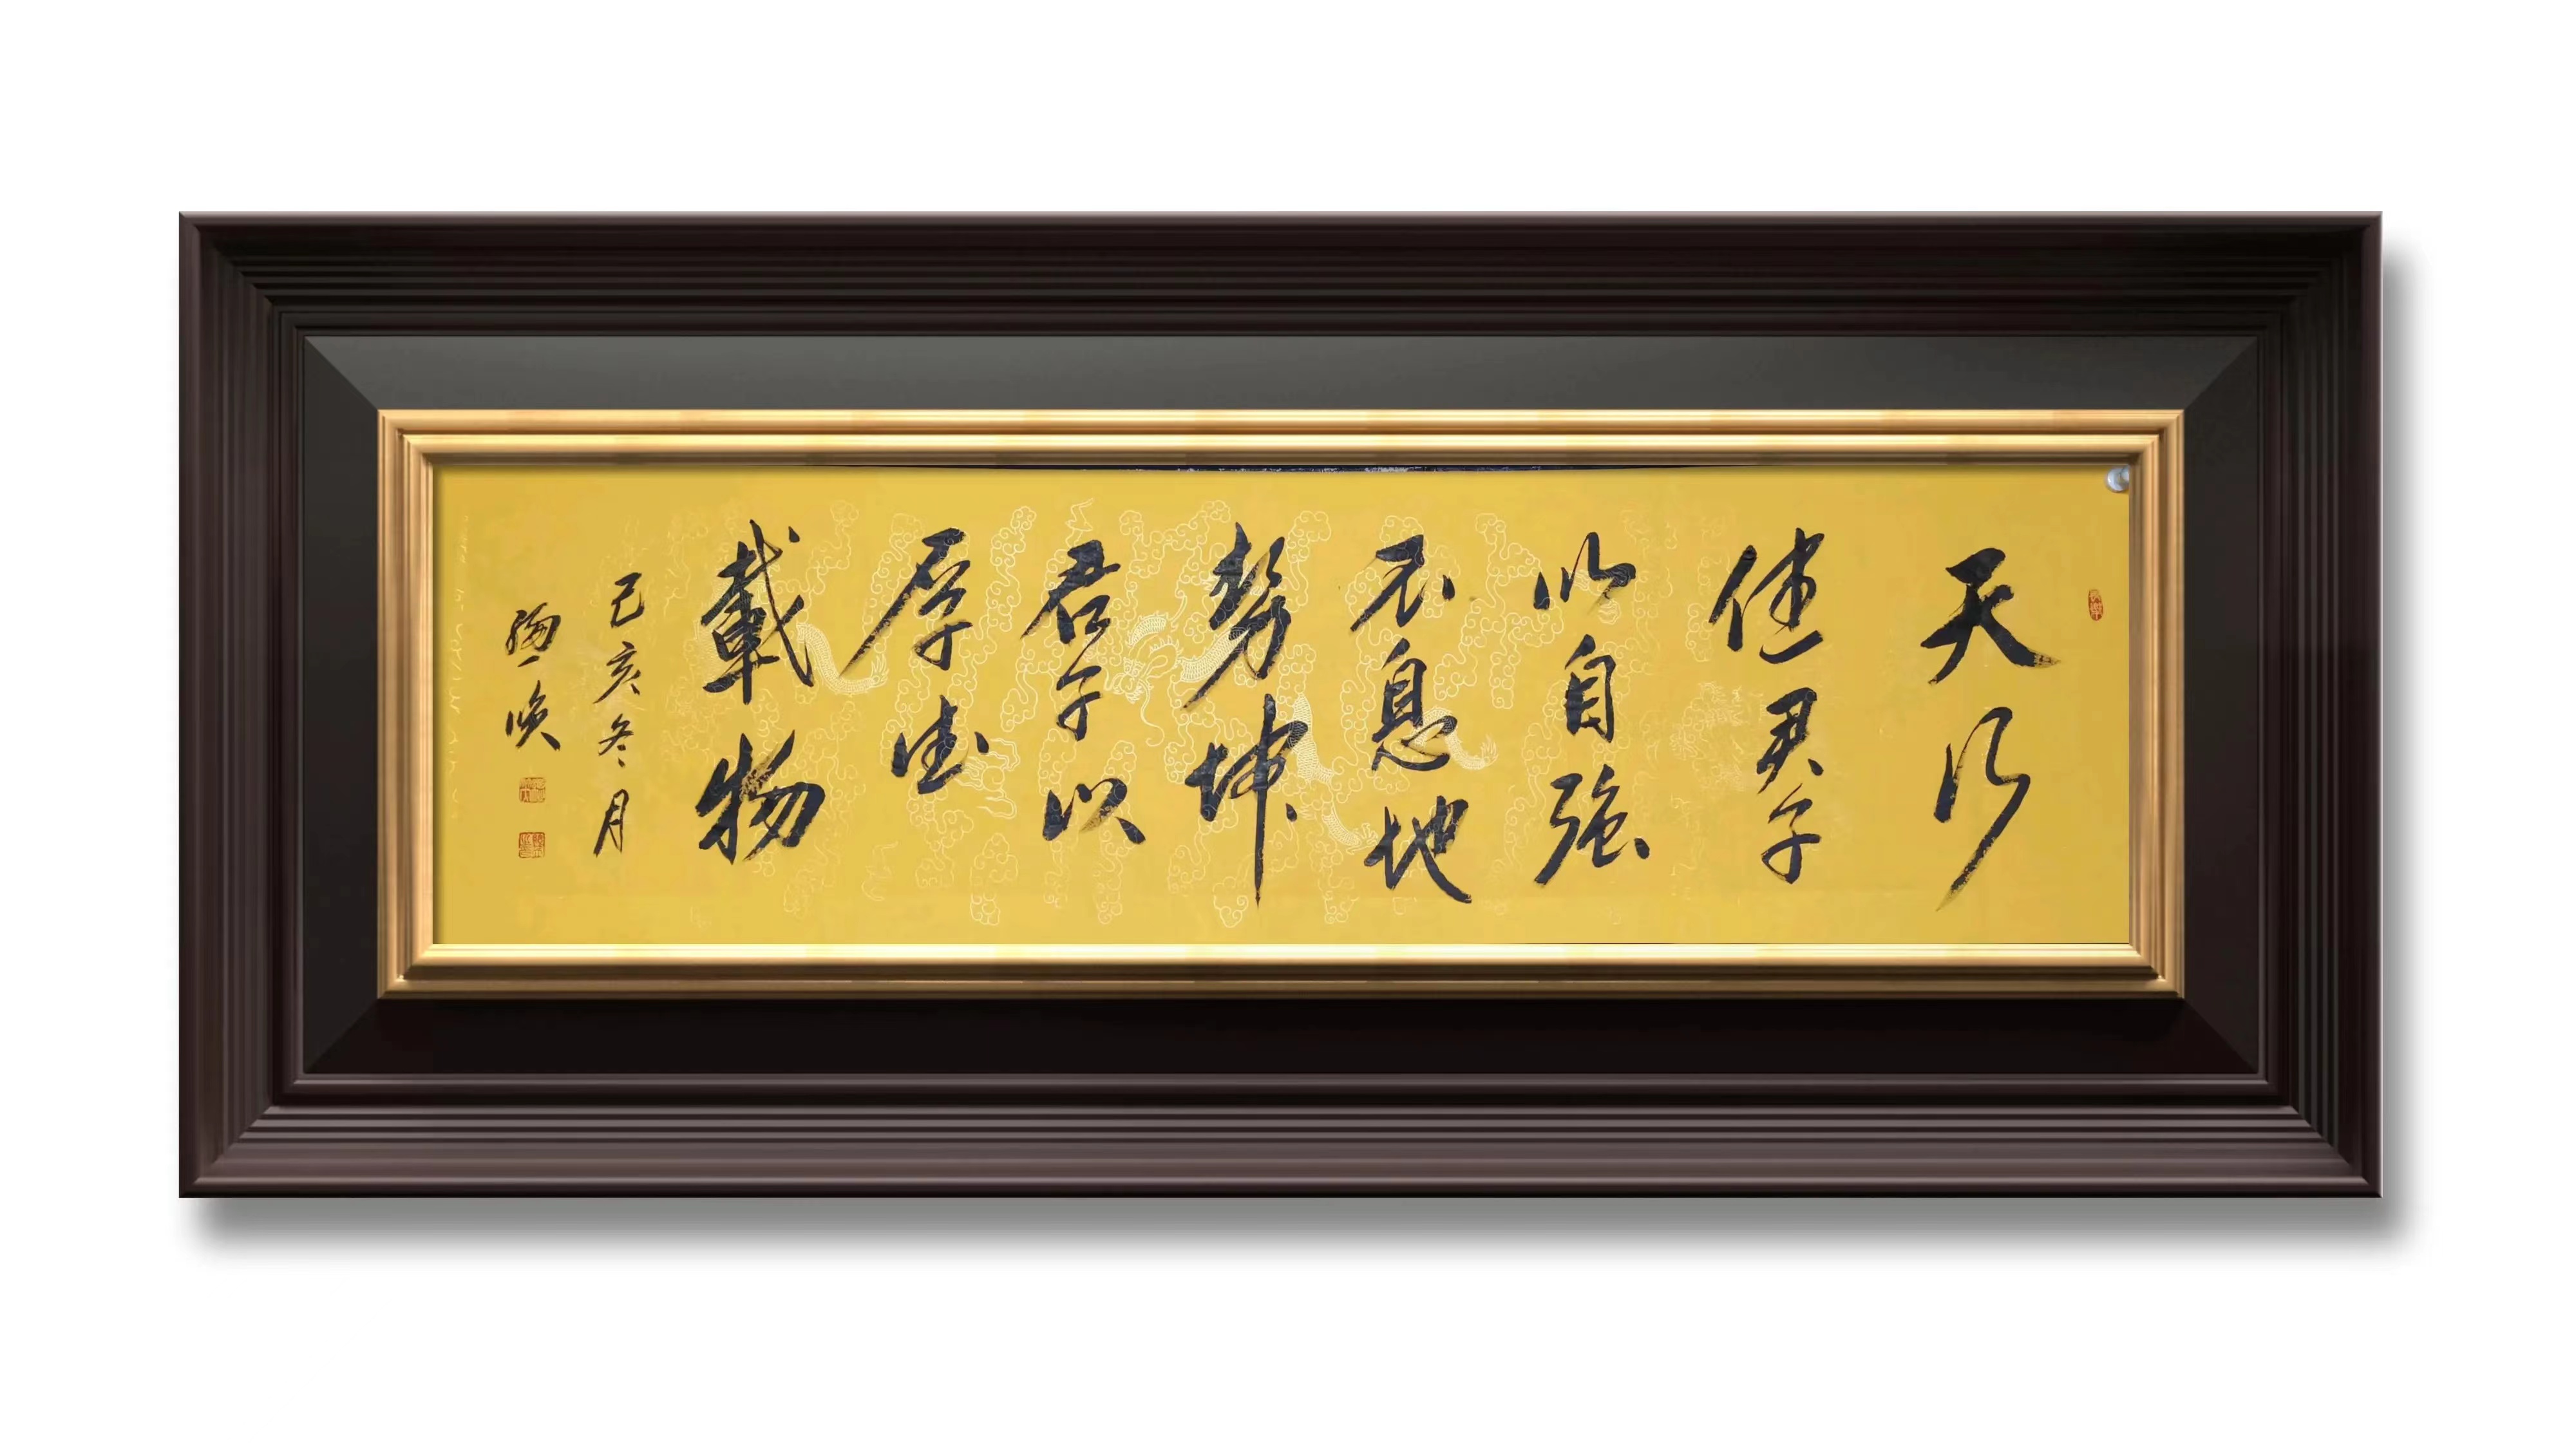 天行
健君子
以自强
不息地
勢坤
君子以
厚德
載物
己亥冬月